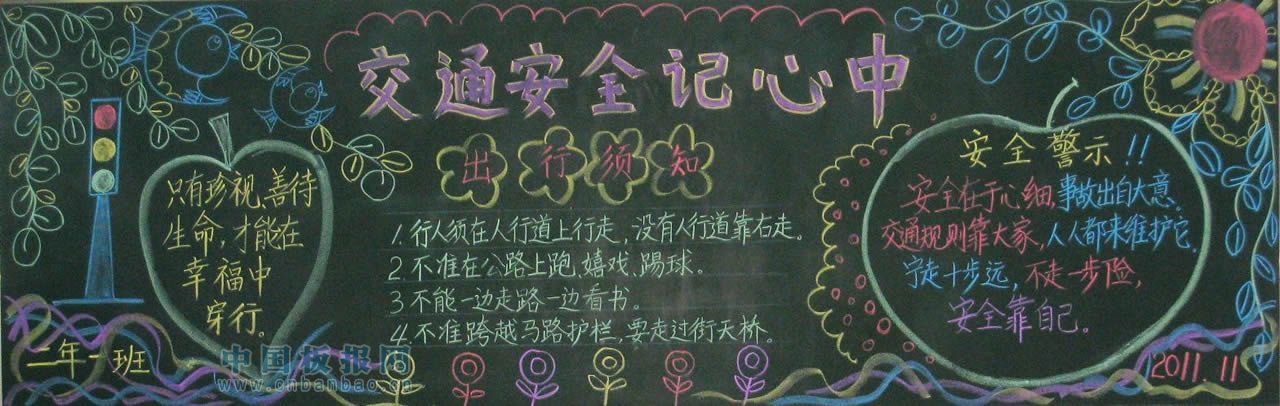 交通安全记心中
只有珍视,善待
生命,才能在
幸福中
穿行。
二年一班
出行须知
1.行人须在人行道上行走,没有人行道靠右走。
2.不准在公路上跑,嬉戏,踢球。
3不能一边走路一边看书。
4.不准跨越马路护栏,要走过街天桥。
安全警示!!
安全在于心细,事故出自大意。
交通规则靠大家,人人都来维护它。
宁走十步远,不走一步险,
安全靠自己。
2011.11
中国板报网
www.cnbanbao.cn